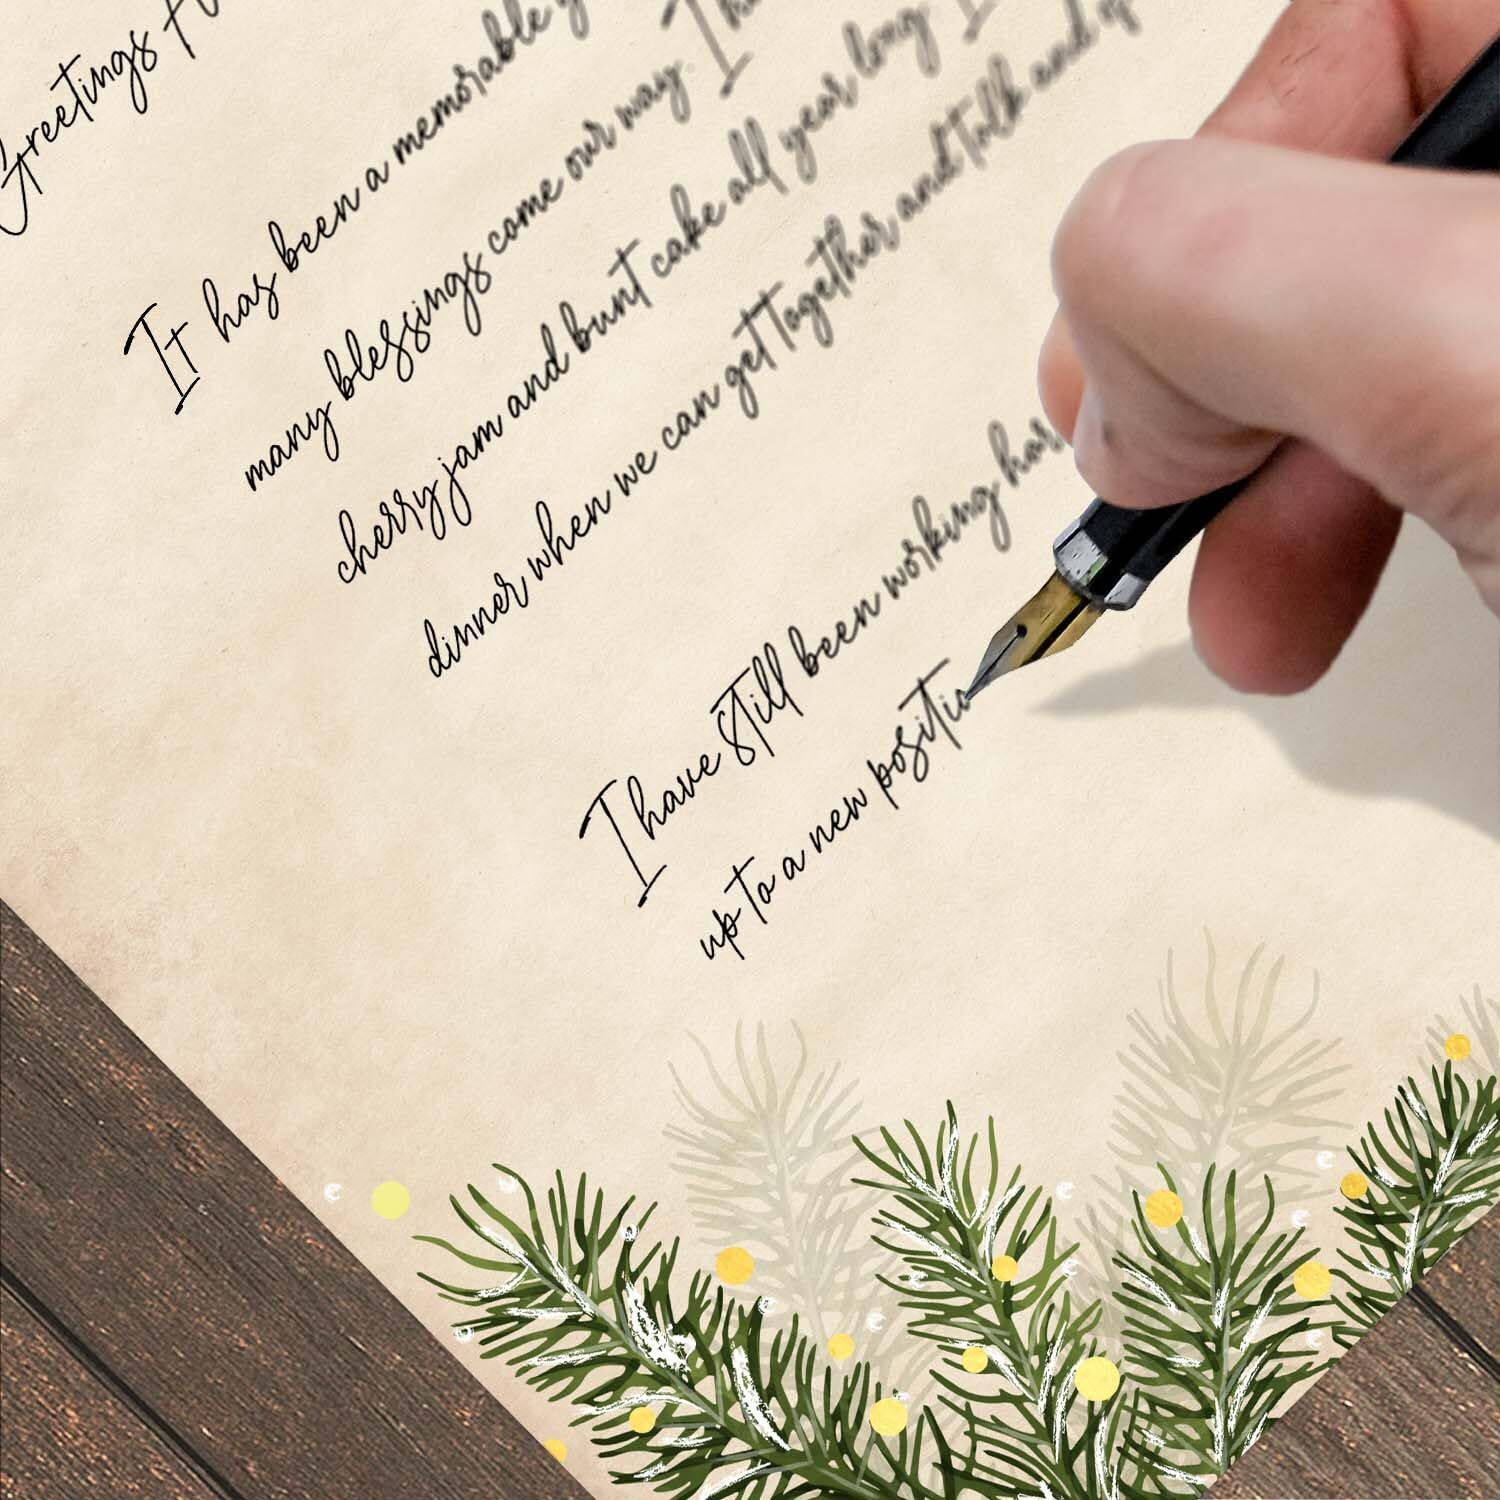 Greetings
It has been a memorable
many blessings come our way.
cherry jam and bunt cake all year long. I
dinner when we can get together and talk and
I have still been working
up to a new positio